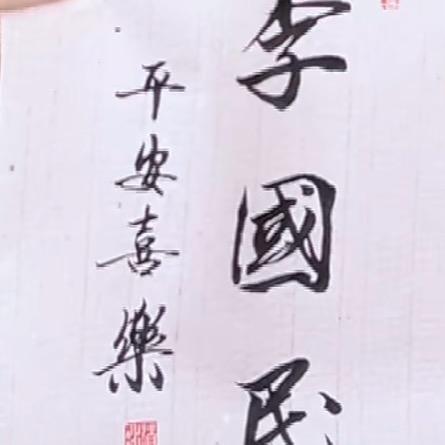 李國民
平安喜樂